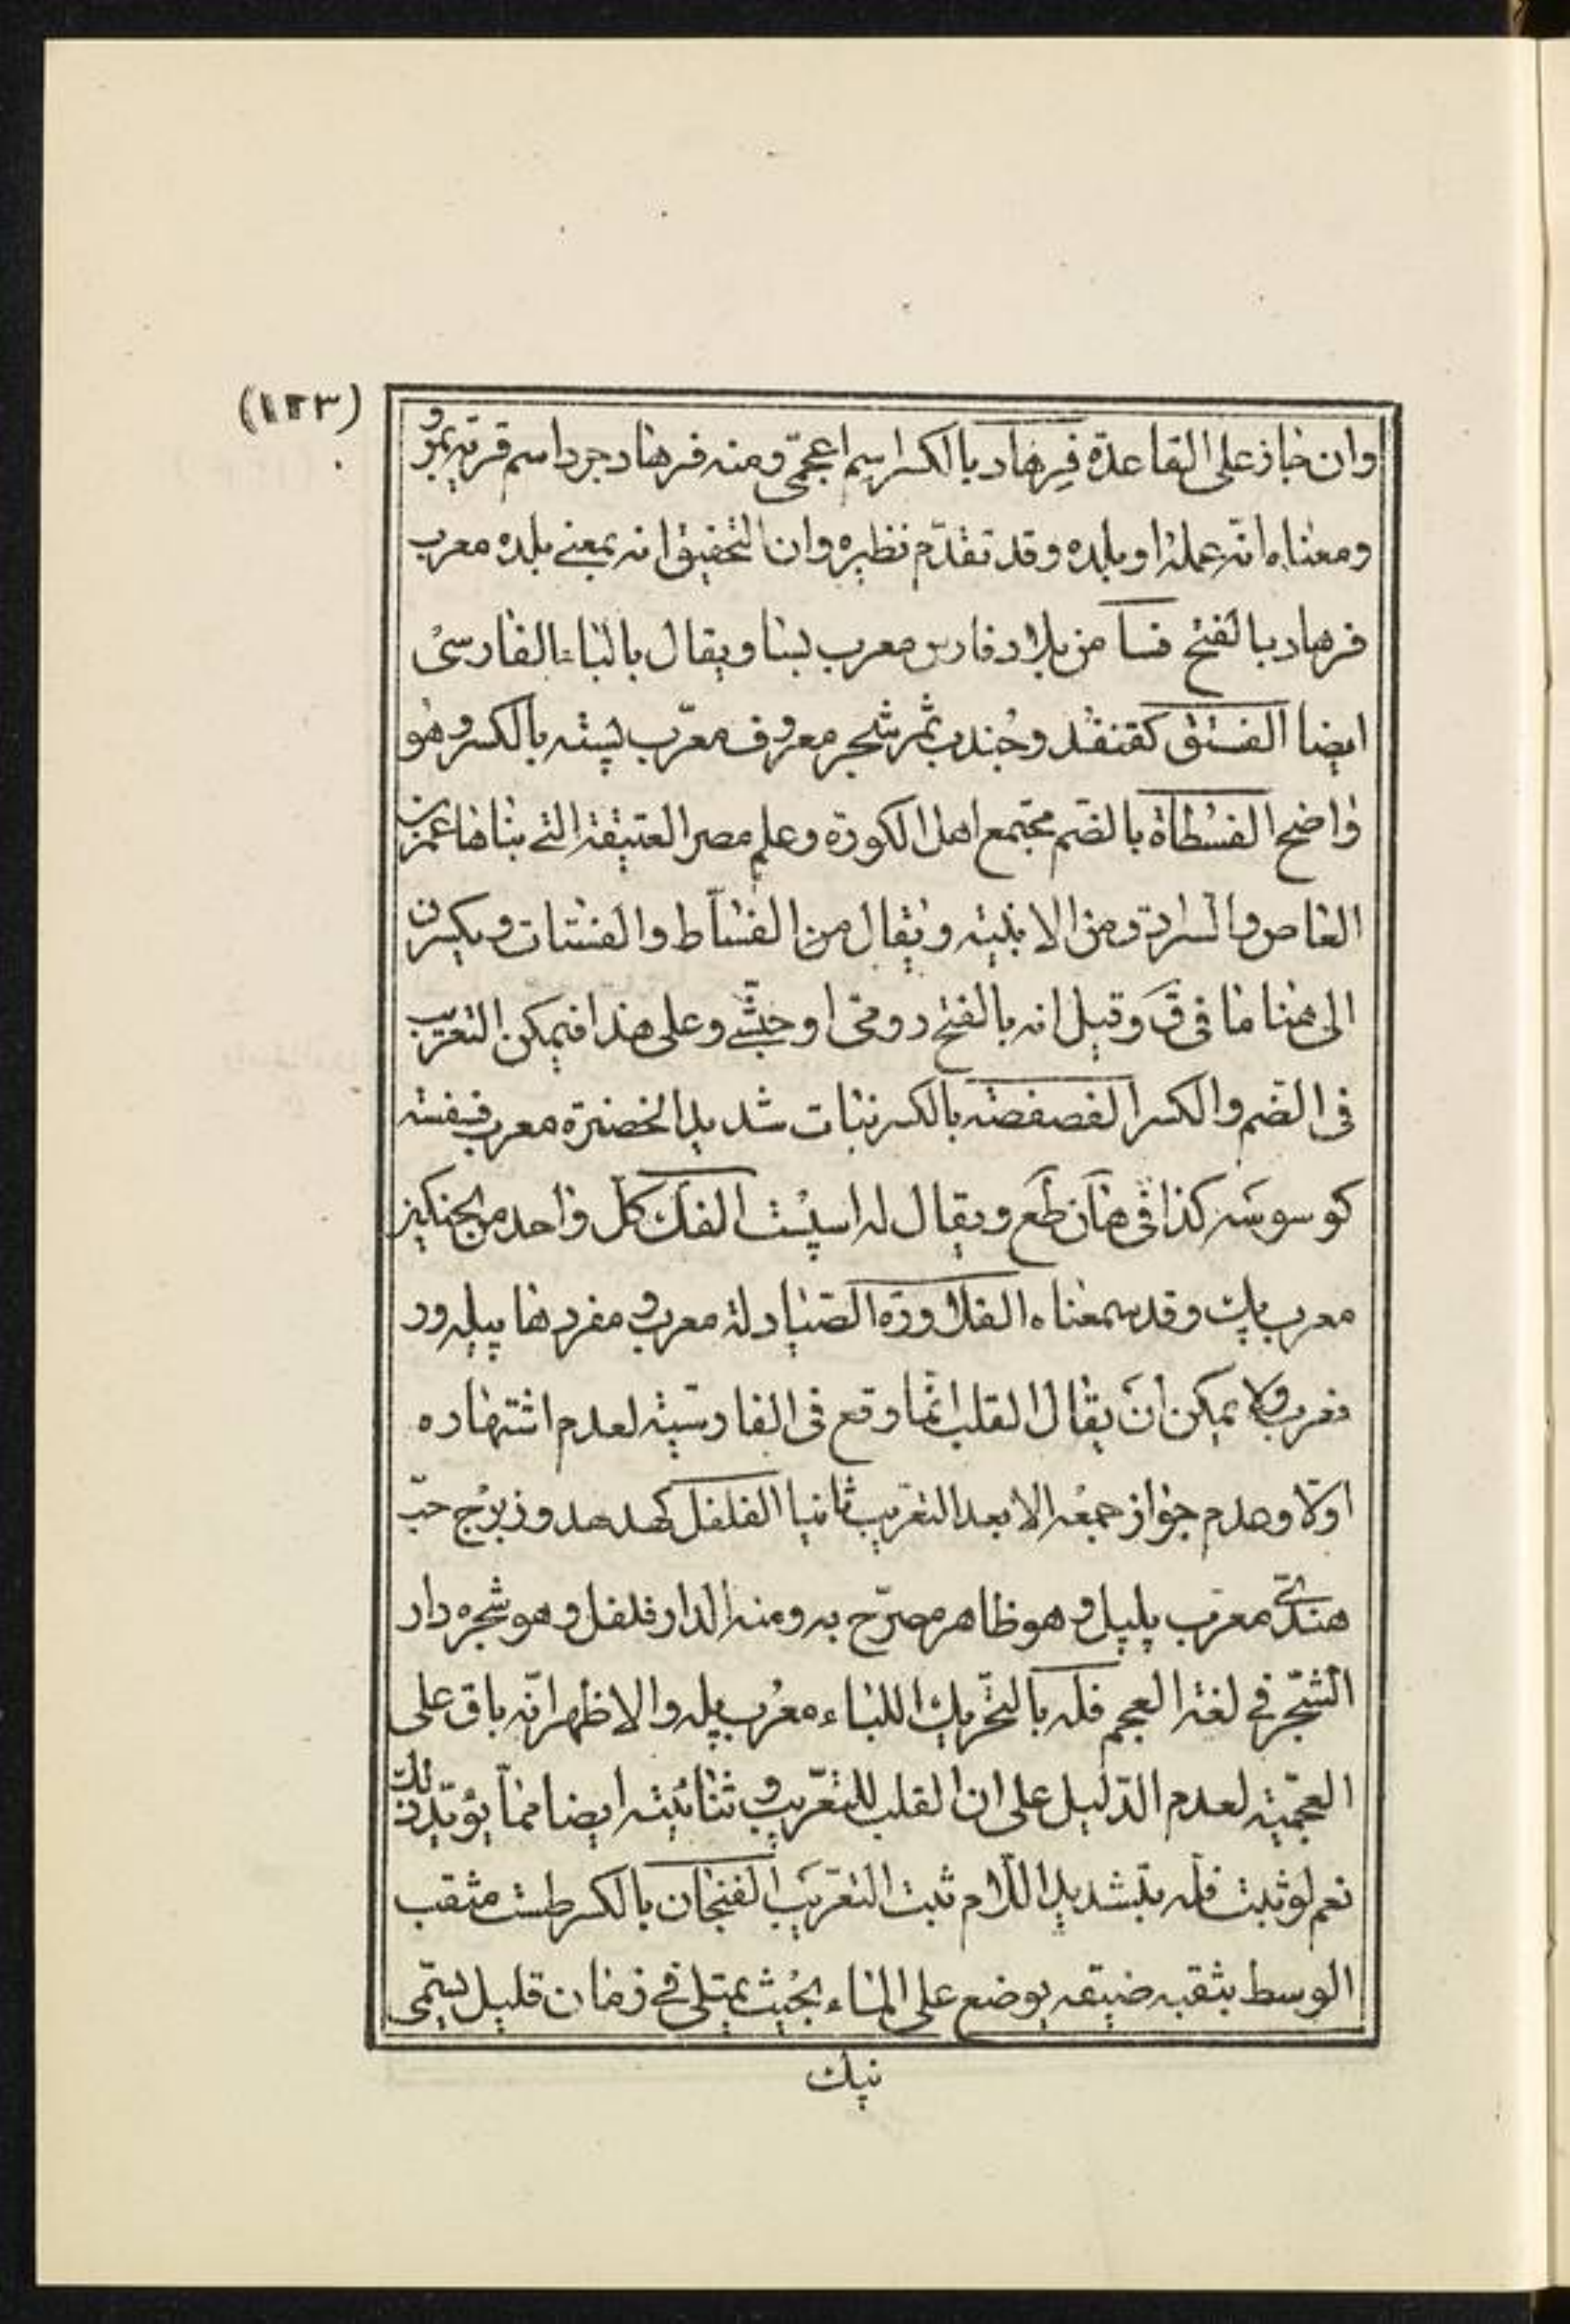 (١٢٣)
وان جاز على القاعدة فِرهاد بالكسر اسم اعجمّى ومنه فرهادجرد اسم قرية بمرو
ومعناه انّه عمله او بلده وقد تقدّم نظيره وان التحقيق انه بمعنى بلده معرب
فرهاد بالفتح فسا من بلاد فارس معرب بسا ويقال بالباء الفارسى
ايضا الفستق كقنفذ وجُندب ثمر شجر معروف معرّب پسته بالكسر وهو
واضح الفسطاة بالضم مجتمع اهل الكورة وعلم مصر العتيقة التى بناها عمرو بن
العاص والسرادق ومن الابنية ويقال من الفساط والفستات ويكسرن
الى هنا ما فى ق وقيل انه بالفتح رومى او حبشّى وعلى هذا فيمكن التعريب
فى الضم والكسر الفصفصة بالكسر نبات شديد الخضرة معرب فسفسته
كوسوسه كذا فى هان طع ويقال له اسپست الفك كلّ واحد من الجنكيز
معرب پك وقد سمعناه الفلاورة الصّيادلة معرب ومفردها پيله ور
فعرب ولا يمكن ان يقال القلب انّما وقع فى الفارسية لعدم اشتهاره
اوّلا وعدم جواز جمعه الا بعد التعريب ثانيا الفلفل كهدهد وزبرج حبّ
هندىّ معرّب پلپل وهو ظاهر مصرّح به ومنه الدار فلفل وهو شجره دار
الشّجر فى لغة العجم فله بالتحريك اللباء معرب پله والاظهر انّه باق على
العجميّة لعدم الدّليل على ان القلب للتعريب وثنائيته ايضا ممّا يؤيّد ذلك
نعم لو ثبت فلّه بتشديد اللّام ثبت التعريب الفنجان بالكسر طست مثقب
الوسط بثقبه ضيقه يوضع على الماء بحيث يمتلى فى زمان قليل يسمّى
نيك